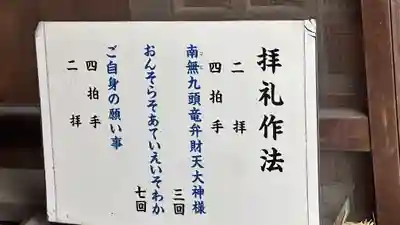 拝礼作法
二拝
四拍手
南無九頭竜弁財天大神様 三回
おんそらそあていえいそわか 七回
ご自身の願い事
四拍手
二拝